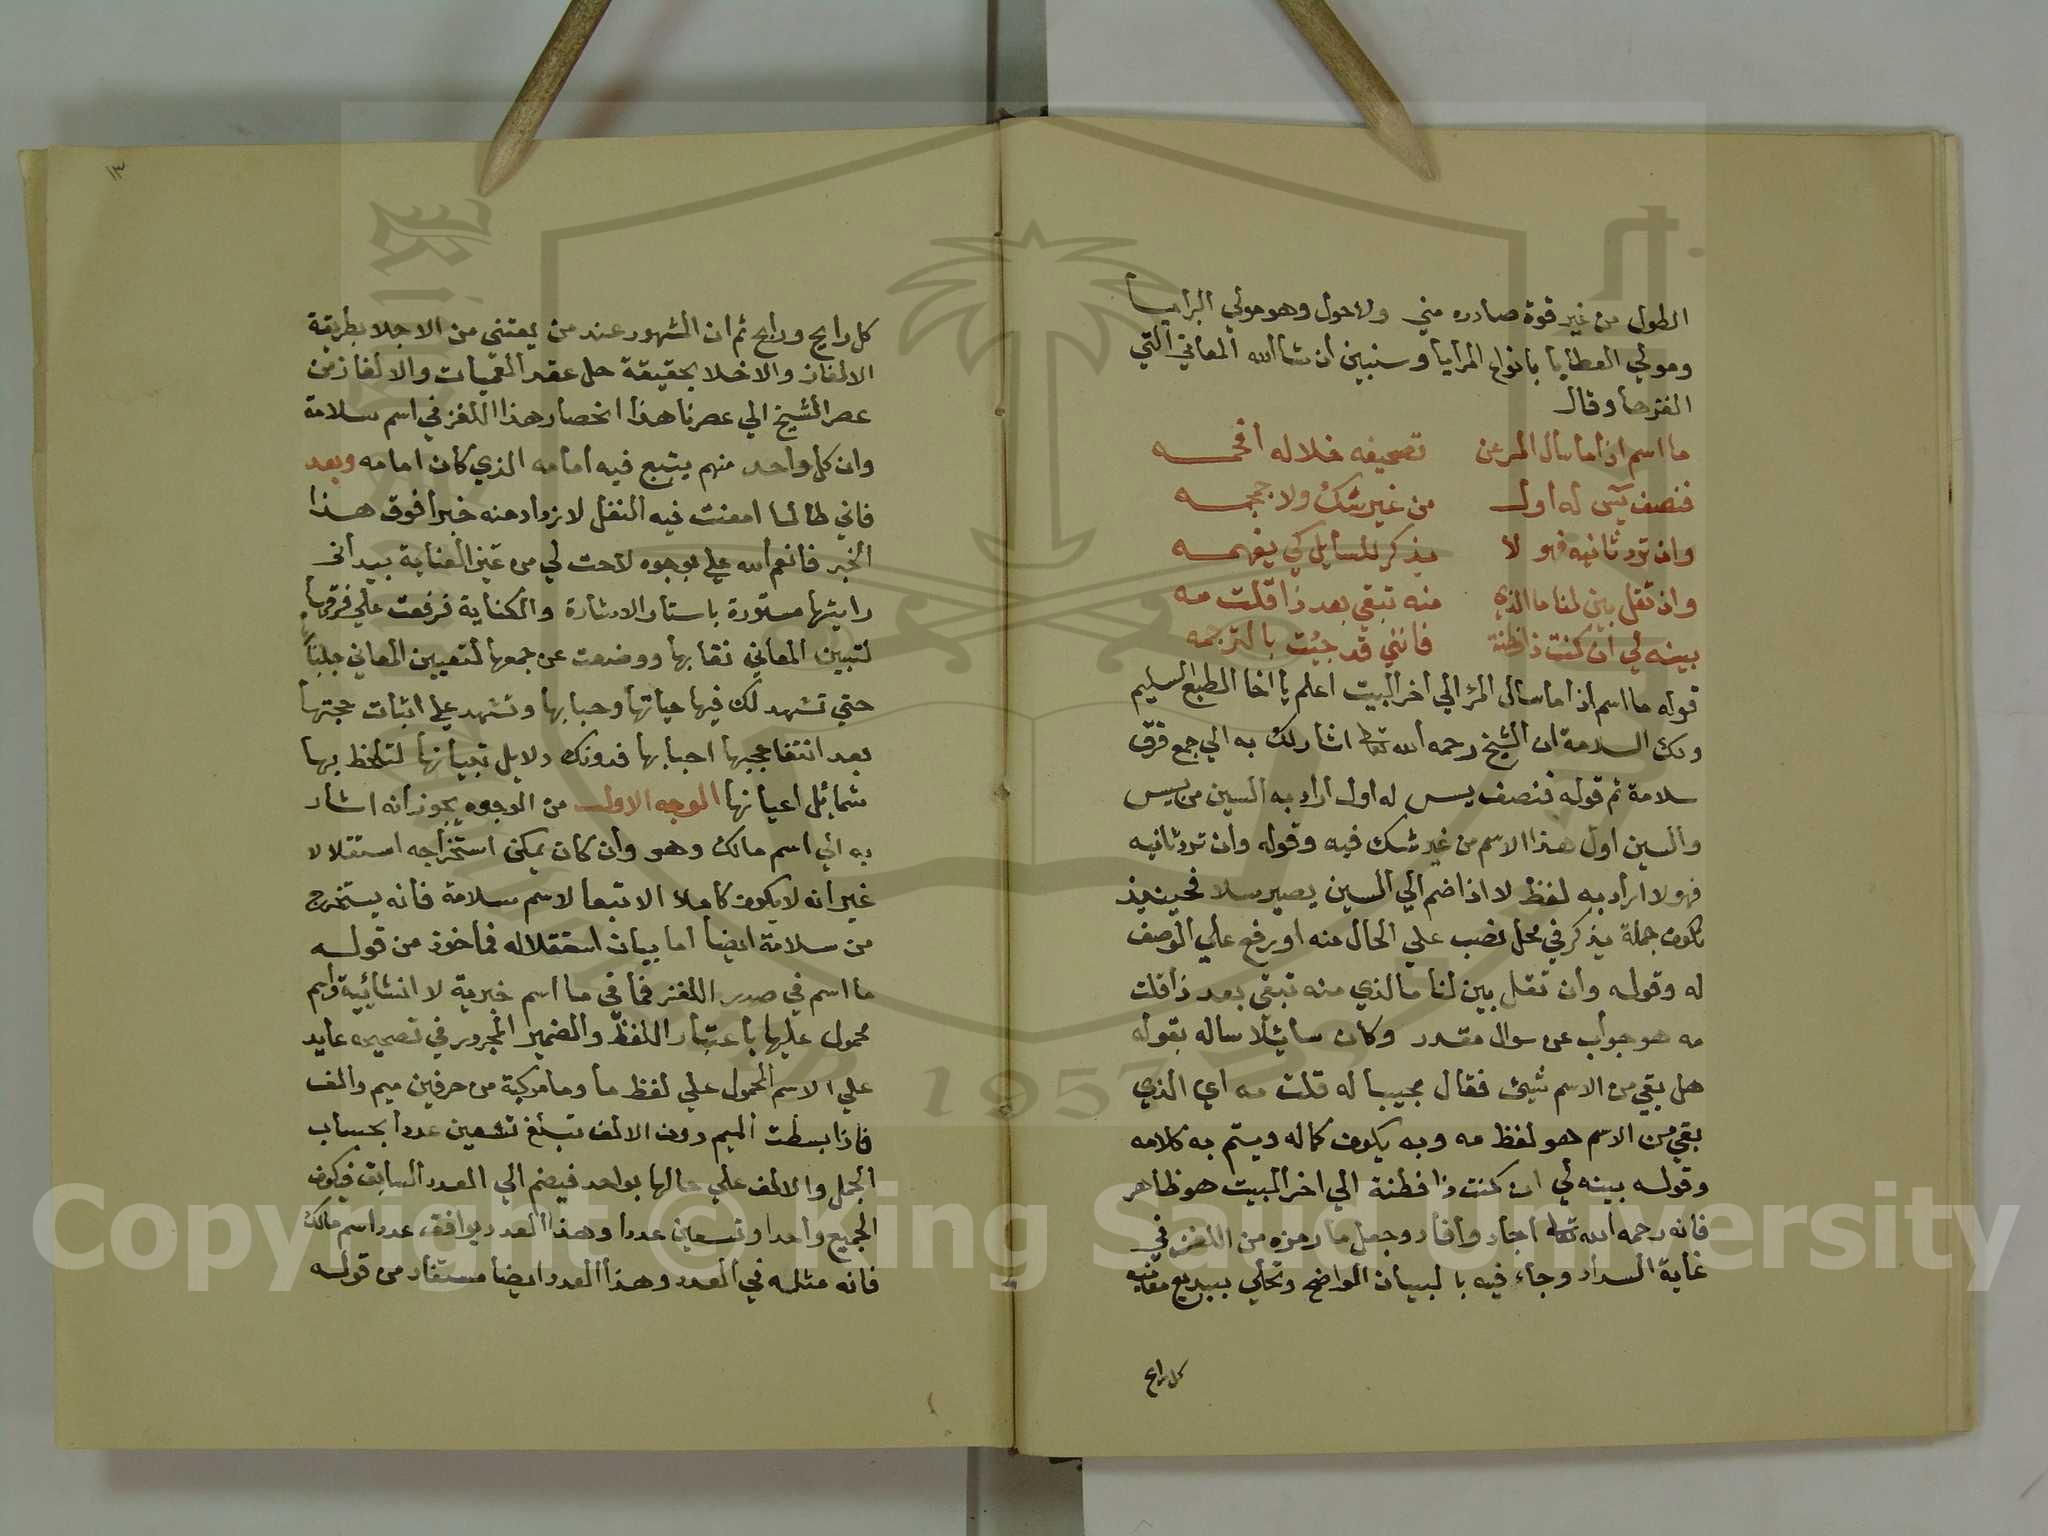 الطول من غير قوة صادره مني ولا حول وهو مولي البرايا
ومولي العطايا بانواع المزايا وسنبين ان شاالله المعاني التي
الغزها وقال
ما اسم اذا ما سال المر عن تصحيفه خلا له افحمه
فنصف يس له اول من غير شك ولا جمجمه
وان ترد ثانيه فهو لا يذكر للسايل كي يفهمه
وان تقل بين لنا ما الذي منه تبقي بعد ذا قلت مه
بينه لي ان كنت ذا فطنة فانني قد جيت بالترجمه
قوله ما اسم اذا ما سال المر الي اخر البيت اعلم يا اخا الطبع السليم
ولك السلامة ان الشيخ رحمه الله تعالى اشار لك به الي جمع فرق
سلامة ثم قوله فنصف يس له اول اراد به السين من يس
والسين اول هذا الاسم من غير شك فيه وقوله وان ترد ثانيه
فهو لا اراد به لفظ لا اذا ضم الي السين يصير سلا فحينيذ
تكون جملة يذكر في محل نصب علي الحال منه او رفع علي الوصف
له وقوله وان تقل بين لنا ما الذي منه تبقي بعد ذا قلت
مه هو جواب عن سوال مقدر وكان سائلا ساله بقوله
هل بقي من الاسم شيئ فقال مجيبا له قلت مه اي الذي
بقي من الاسم هو لفظ مه وبه يكون كماله ويتم به كلامه
وقوله بينه لي ان كنت ذا فطنة الي اخر البيت هو ظاهر
فانه رحمه الله تعالى اجاد وافاد وجعل ما رمزه من اللغز في
غاية السداد وجاء فيه بالبيان الواضح وتحلي ببديع معانيه
كل رايح
١٣
كل رايح ورابح ثم ان المشهور عند من يعتني من الاجلا بطريقة
الالغاز والاخلا بحقيقة حل عقد المعميات والالغاز من
عصر الشيخ الي عصرنا هذا انحصار هذا اللغز في اسم سلامة
وان كل واحد منهم يتبع فيه امامه الذي كان امامه وبعد
فاني طالما امعنت فيه النظر لازداد منه خبرا فوق هذا
الخبر فانعم الله علي بوجوه لاحت لي من عين العناية بيد اني
رايتها مستورة باستار الاشارة والكناية فرفعت علي فرقها
لتبيين المعاني نقابها ووضعت عن جمعها لتعيين المعاني جلبابها
حتي تشهد لك فيها حياتها وحبابها وتشهد علي اثبات حجتها
بعد انتفا حجبها احبابها فدونك دلايل تبيانها لتلحظ بها
شمائل اعيانها الوجه الاول من الوجوه يجوز انه اشار
به الي اسم مالك وهو وان كان يمكن استخراجه استقلالا
غير انه لا يكون كاملا الا تبعا لاسم سلامة فانه يستخرج
من سلامة ايضا اما بيان استقلاله فماخوذ من قوله
ما اسم في صدر اللغز فما في ما اسم خبرية لا انشائية واسم
محمول عليها باعتبار اللفظ والضمير المجرور في تصحيفه عايد
علي الاسم المحمول علي لفظ ما وما مركبة من حرفين ميم والف
فاذا بسطت الميم دون الالف تبلغ تسعين عددا بحساب
الجمل والالف علي حالها بواحد فيضم الي العدد السابق فيكون
الجميع واحدا وتسعين عددا وهذا العدد يوافق عدد اسم مالك
فانه مثله في العدد وهذا العدد ايضا مستفاد من قوله
Copyright © King Saud University
1957